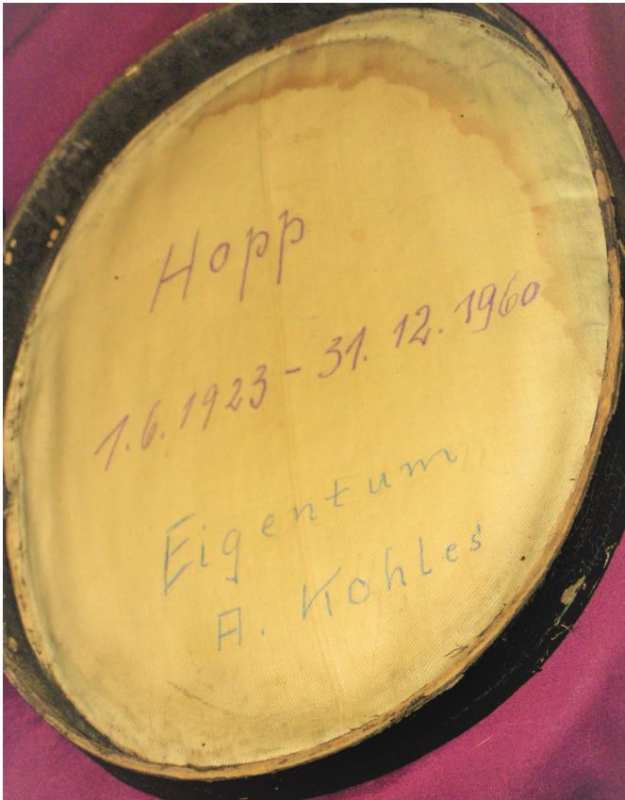 Hopp
1.6.1923 - 31. 12. 1960
Eigentum
A. Kohles